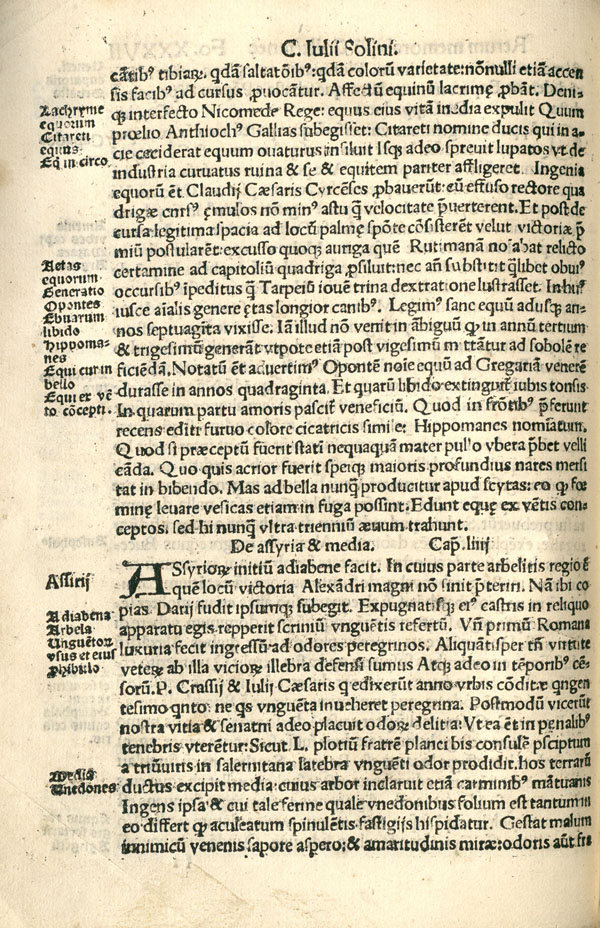 C. Iulii Solini.
cātibꝰ tibiaꝝ. qdā saltatōibꝰ: qdā colorū varietate: nōnulli etiā accen
sis facibꝰ ad cursus ꝓuocātur. Affectū equinū lacrime ꝓbāt. Deni-
qꝫ interfecto Nicomede Rege: equus eius vitā inedia expulit Quum
prœlio Anthiochꝰ Gallias subegisset: Citareti nomine ducis qui in a-
cie ceciderat equum ouaturus insiluit Isqꝫ adeo spreuit lupatos vt de
industria curuatus ruina & se & equitem pariter affligeret. Ingenia
equorū ēt Claudij Cæsaris Cyrcēses ꝓbauerūt: cū effuso rectore qua
drigæ cursꝰ ęmulos nō minꝰ astu ꝙ̄ velocitate p̄uerterent. Et post de
cursa legitima spacia ad locū palme spōte cōsisterēt velut victoriæ p̄
miū postularēt: excusso quoqꝫ auriga quē Rutimanā noīabat relicto
certamine ad capitoliū quadriga ꝓsiluit: nec an̄ substitit q̄libet obuiꝰ
occursibꝰ īpeditus ꝙ̄ Tarpeiū iouē trina dextratione lustrasset. In huꝰ
iusce aīalis genere ętas longior canibꝰ. Legimꝰ sane equū adusqꝫ an-
nos septuagīta vixisse. Iā illud nō venit in ābiguū ꝙ in annū tertium
& trigesimū generāt vtpote etiā post vigesimū mittātur ad sobolē re
ficiēdā. Notatū ēt aduertimꝰ Opontē noīe equū ad Gregariā venerē
durasse in annos quadraginta. Et quarū libido extinguit᷑ iubis tonsis
In quarum partu amoris pascit᷑ veneficiū. Quod in frōtibꝰ p̄ferunt
recens editi: furuo colore cicatricis simile: Hippomanes nomīatum.
Quod si præceptū fuerit statī nequaquā mater pullo vbera p̄bet velli
cāda. Quo quis acrior fuerit speiqꝫ maioris profundius nares mersi
tat in bibendo. Mas ad bella nunq̄ producitur apud scytas: eo ꝙ fœ
minę leuare vesicas etiam in fuga possint. Edunt equę ex vētis con-
ceptos. sed hi nunq̄ vltra trienniū æuum trahunt.
De assyria & media. Cap. liiij
ASsyrioꝝ initiū adiabene facit. In cuius parte arbelitis regio ē
quē locū victoria Alexādri magni nō sinit p̄teriri. Nā ibi co
pias Darij fudit ipsumqꝫ subegit. Expugnatisqꝫ eiꝰ castris in reliquo
apparatu egis repperit scriniū vnguētis refertū. Vn̄ primū Romana
luxuria fecit ingressū ad odores peregrinos. Aliquātisper tn̄ virtute
veteꝝ ab illa vicioꝝ illebra defensi sumus Atqꝫ adeo in tēporibꝰ cē-
sorū. P. Crassij & Iulij Cæsaris q edixerūt anno vrbis cōditæ qngen
tesimo qnto: ne qs vnguēta inueheret peregrina. Postmodū vicerūt
nostra vitia & senatui adeo placuit odoꝝ delitia: Vt ea ēt in penalibꝰ
tenebris vterētur: Sicut. L. plotiū fratrē planci bis consulē pscriptum
a triūuiris in salernitana latebra vnguēti odor prodidit. hos terrarū
ductus excipit media: cuius arbor inclaruit etiā carminibꝰ mātuanis
Ingens ipsa & cui tale ferme quale vnedonibus folium est tantum in
eo differt ꝙ aculeatum spinulētis fastigijs hispidatur. Gestat malum
inimicū venenis sapore aspero: & amaritudinis miræ: odoris aūt fra
Lachryme
equorum
Citareti
equus.
Eq in circo.
Aetas
equorum
Generatio
Opontes
Equarum
libido
Hippoma-
nes
Equi cur in
bello
Equi ex vē
to cōcepti.
Assirij
Adiabena
Arbela
Unguētoꝝ
vsus et eius
ꝓhibitio
Media
Unedones